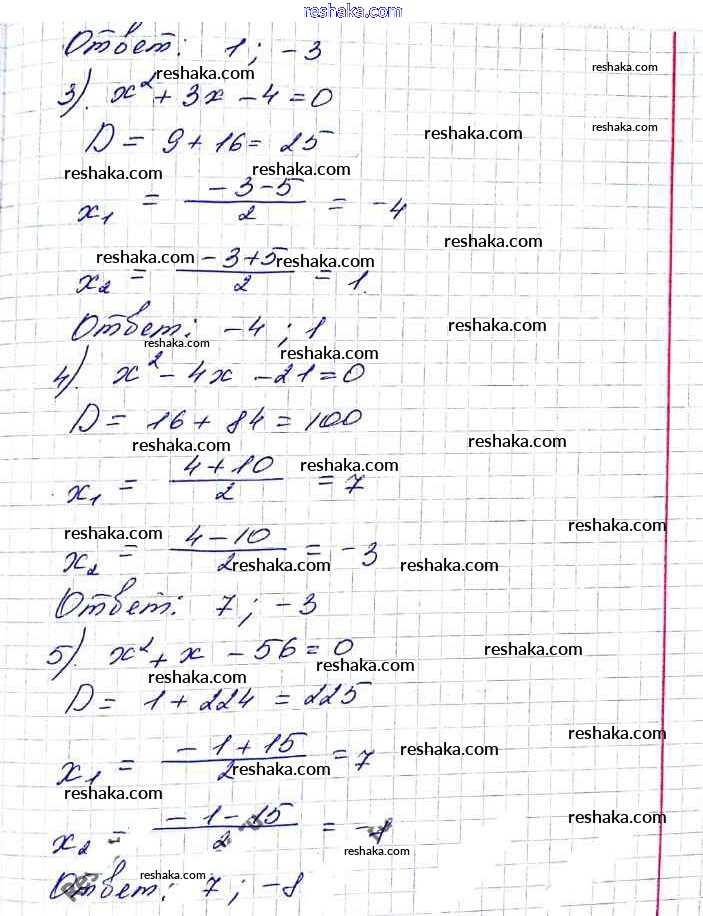 reshaka.com
Ответ: 1; -3
reshaka.com reshaka.com
3). x² + 3x - 4 = 0
reshaka.com
D = 9 + 16 = 25 reshaka.com
reshaka.com reshaka.com
x₁ = (-3-5)/2 = -4
reshaka.com
x₂ = (-3+5)/2 = 1.
reshaka.com reshaka.com
Ответ: -4; 1 reshaka.com
reshaka.com reshaka.com
4). x² - 4x - 21 = 0
D = 16 + 84 = 100
reshaka.com reshaka.com
x₁ = (4+10)/2 = 7
reshaka.com
reshaka.com reshaka.com
x₂ = (4-10)/2 = -3
reshaka.com reshaka.com
Ответ: 7; -3
5). x² + x - 56 = 0 reshaka.com
reshaka.com
D = 1 + 224 = 225
reshaka.com
x₁ = (-1+15)/2 = 7 reshaka.com
reshaka.com reshaka.com
reshaka.com
x₂ = (-1-15)/2 = -
reshaka.com
reshaka.com
Ответ: 7; -8
reshaka.com